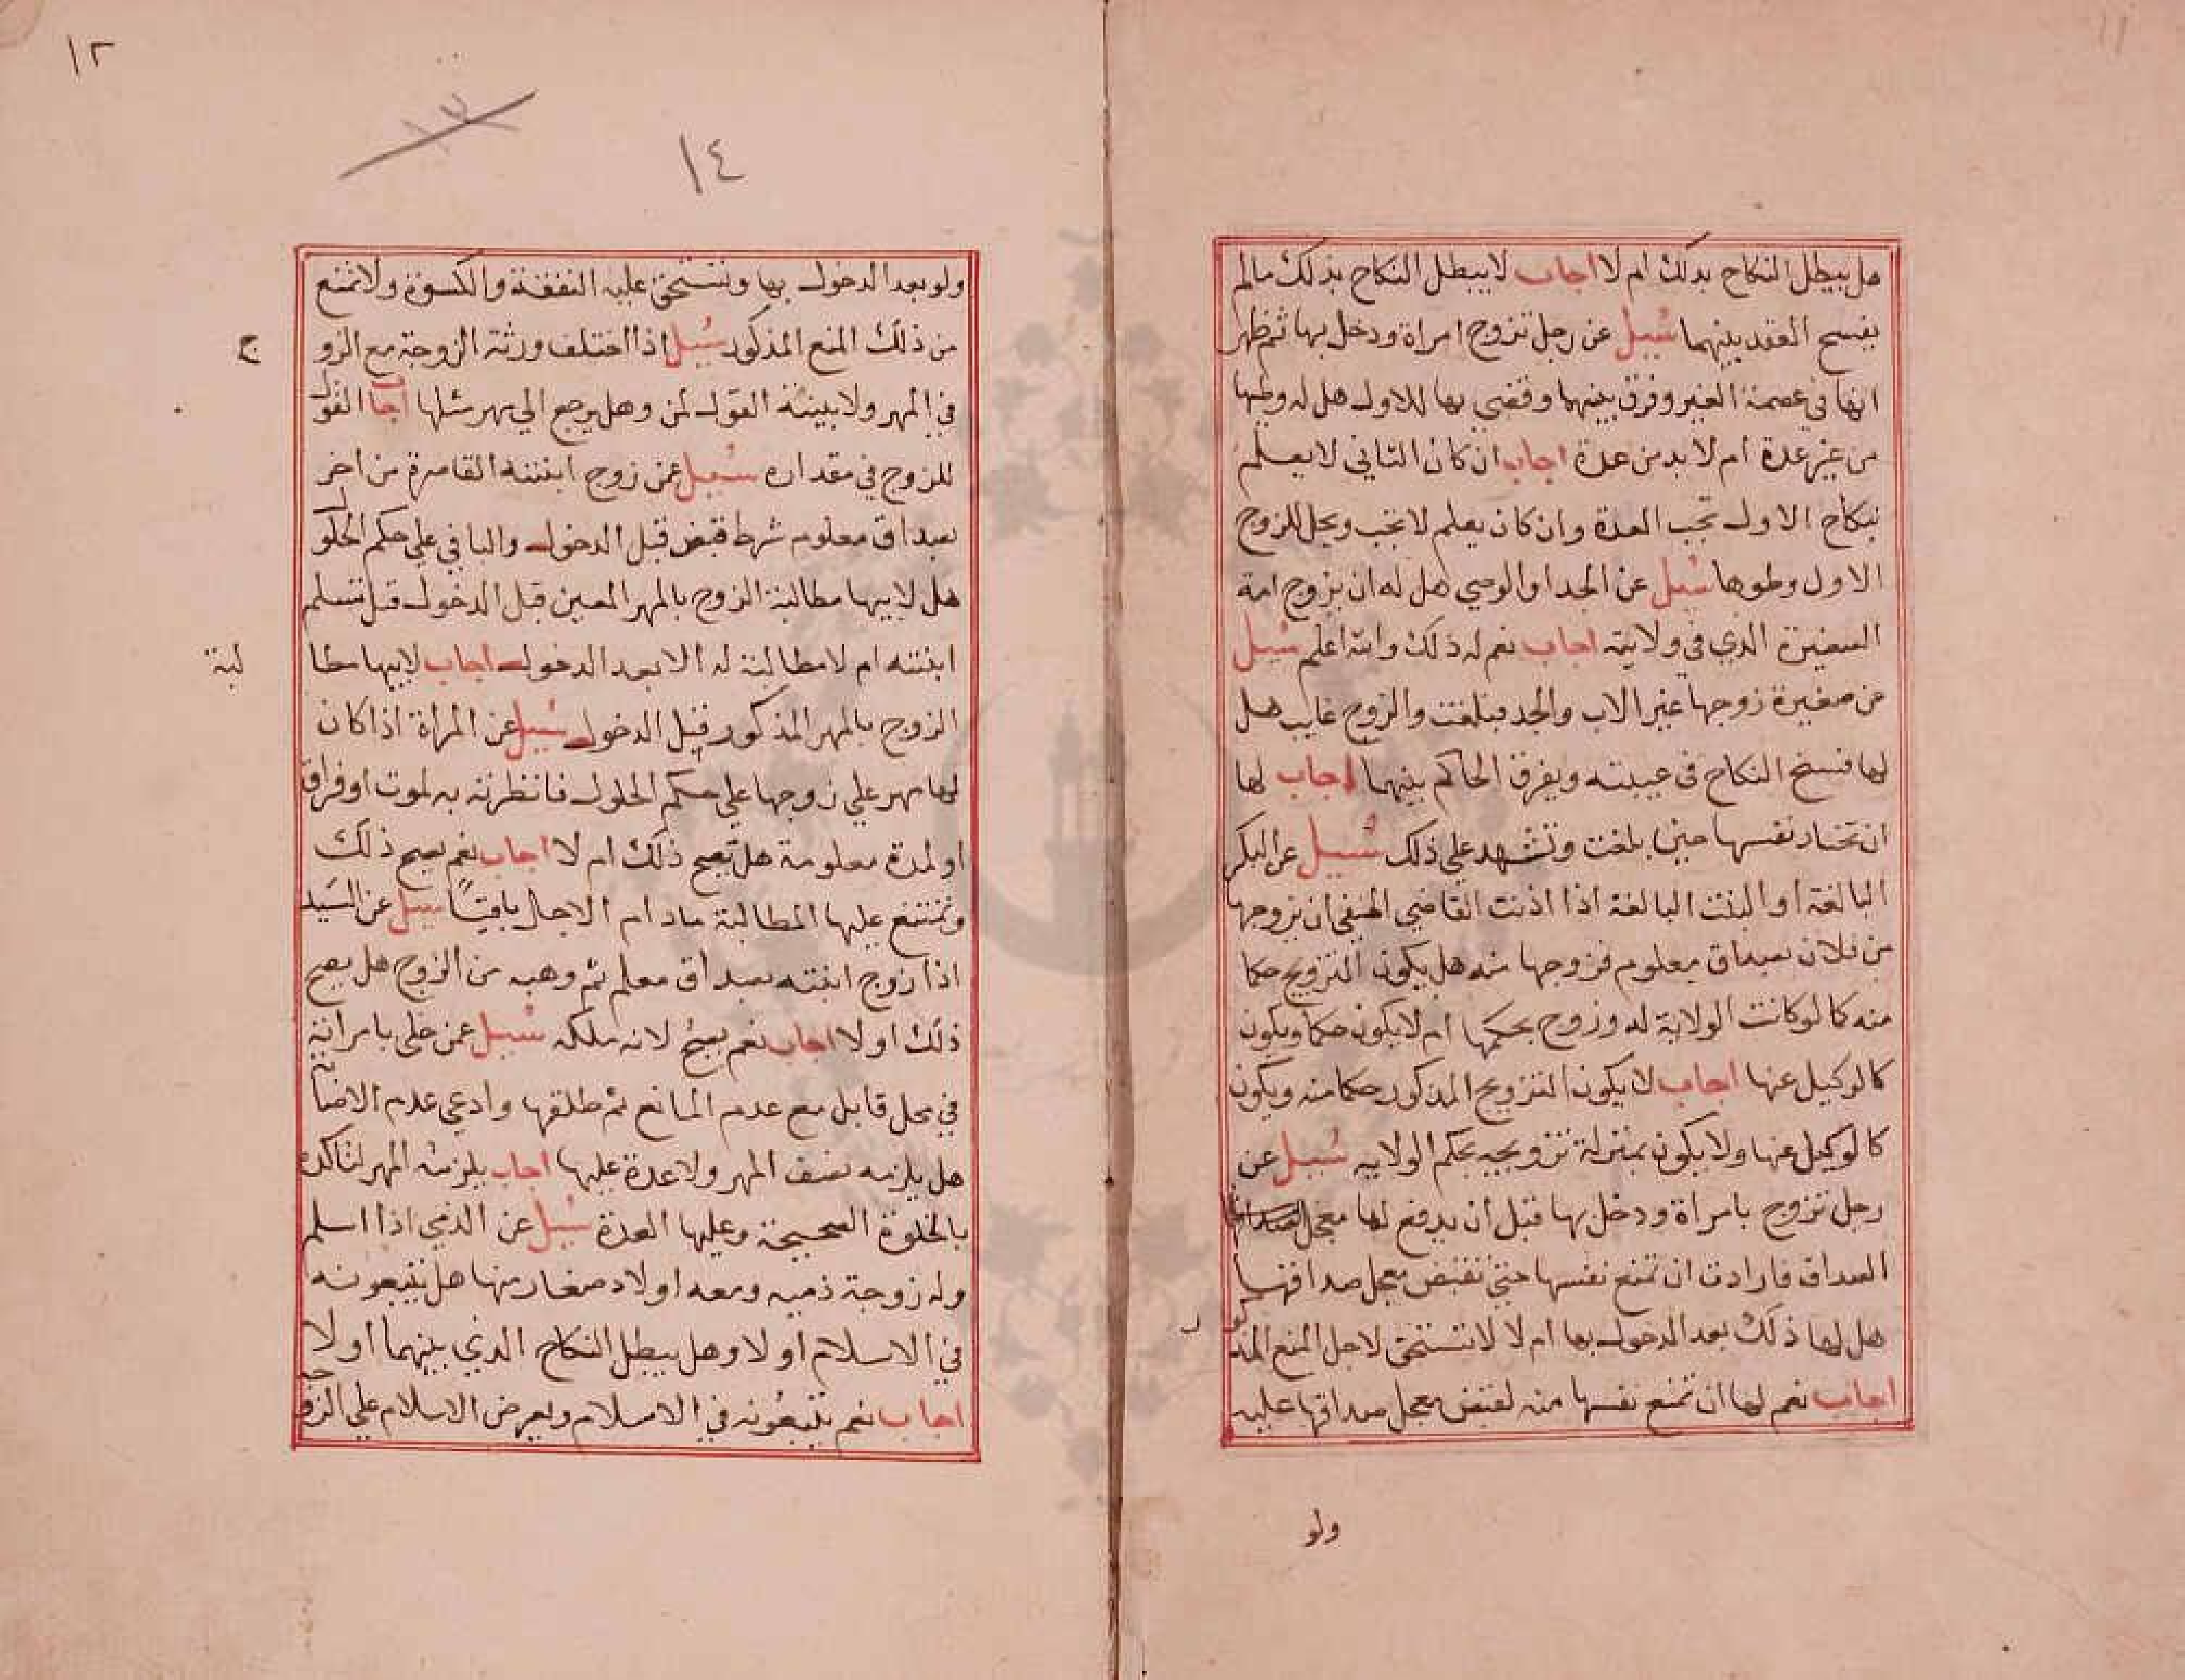 ١١
هل يبطل النكاح بذلك ام لا اجاب لا يبطل النكاح بذلك مالم
يفسح العقد بينهما سُيل عن رجل تزوج امراة ودخل بها ثم ظهر
انها في عصمة الغير وفرق بينهما وقضي بها للاول هل له وطيها
من غير عدة ام لا بد من عدة اجاب ان كان الثاني لا يعلم
نبكاح الاول تجب العدة وان كان يعلم لا تجب ويحل للزوج
الاول وطوها سيل عن الجد او الوصي هل له ان يزوج امة
الصغيرة الذي في ولايته اجاب نعم له ذلك والله اعلم سُيل
عن صغيرة زوجها غير الاب والجد فبلغت والزوج غايب هل
لها فسخ النكاح في غيبته ويفرق الحاكم بينهما اجاب لها
ان تختار نفسها حين بلغت وتشهد على ذلك سُيل عن البكر
البالغة او البنت البالغة اذا اذنت القاضي الحنفي ان يزوجها
من فلان بصداق معلوم فزوجها منه هل يكون التزويج حكما
منه كما لو كانت الولاية له وزوج بحكمها ام لا يكون حكما ويكون
كالوكيل عنها اجاب لا يكون التزويج المذكور حكما منه ويكون
كالوكيل عنها ولا يكون بمنزلة تزويجيه بحكم الولايه سُيل عن
رجل تزوج بامراة ودخل بها قبل ان يدفع لها معجل
الصداق فارادت ان تمنع نفسها حتى تقبض معجل صداقها
هل لها ذلك بعد الدخول بها ام لا لا تستحق لاجل المنع المذ كو ر
اجاب نعم لها ان تمنع نفسها منه لقبض معجل صداقها عليه
ولو
١٢
١٣
١٤
ولو بعد الدخول بها وتستحق عليه النفقة والكسوة ولا تمنع
من ذلك المنع المذكور سُيل اذا اختلف ورثة الزوجة مع الزو ج
في المهر ولا بينة القول لمن وهل يرجع الي مهر مثلها اجا القول
للزوج في مقداره سُيل عمن زوج ابنته القاصرة من اخر
بصداق معلوم شرط قبض قبل الدخول والباقي علي حكم الحلو ل
هل لابيها مطالبة الزوج بالمهر المعين قبل الدخول قبل تسلم
ابنته ام لا مطالبة له الا بعد الدخول اجاب لابيها مطا لبة
الزوج بالمهر المذكور قبل الدخول سُيل عن المراة اذا كان
لها مهر علي زوجها علي حكم الحلول فانظرته به لموت او فراق
او لمدة معلومة هل يصح ذلك ام لا اجاب نعم يصح ذلك
وتمتنع عليها المطالبة مادام الاجال باقيًا سيل عن السَيد
اذا زوج ابنته بصداق معلم ثم وهبه من الزوج هل يصح
ذلك او لا اجاب نعم يصح لانه ملكه سُيل عمن خلى بامراته
في محل قابل مع عدم المانع ثم طلقها وادعي عدم الاصابة
هل يلزمه نصف المهر ولا عدة عليها اجاب يلزمه المهر لتاكده
بالخلوة الصحيحة وعليها العدة سُيل عن الذمي اذا اسلم
وله زوجة ذميه ومعه اولاد صغار منها هل يتبعونه
في الاسلام او لا وهل يبطل النكاح الذي بينهما او لا
اجاب نعم يتبعُونه في الاسلام ويعرض الاسلام علي الزوجه